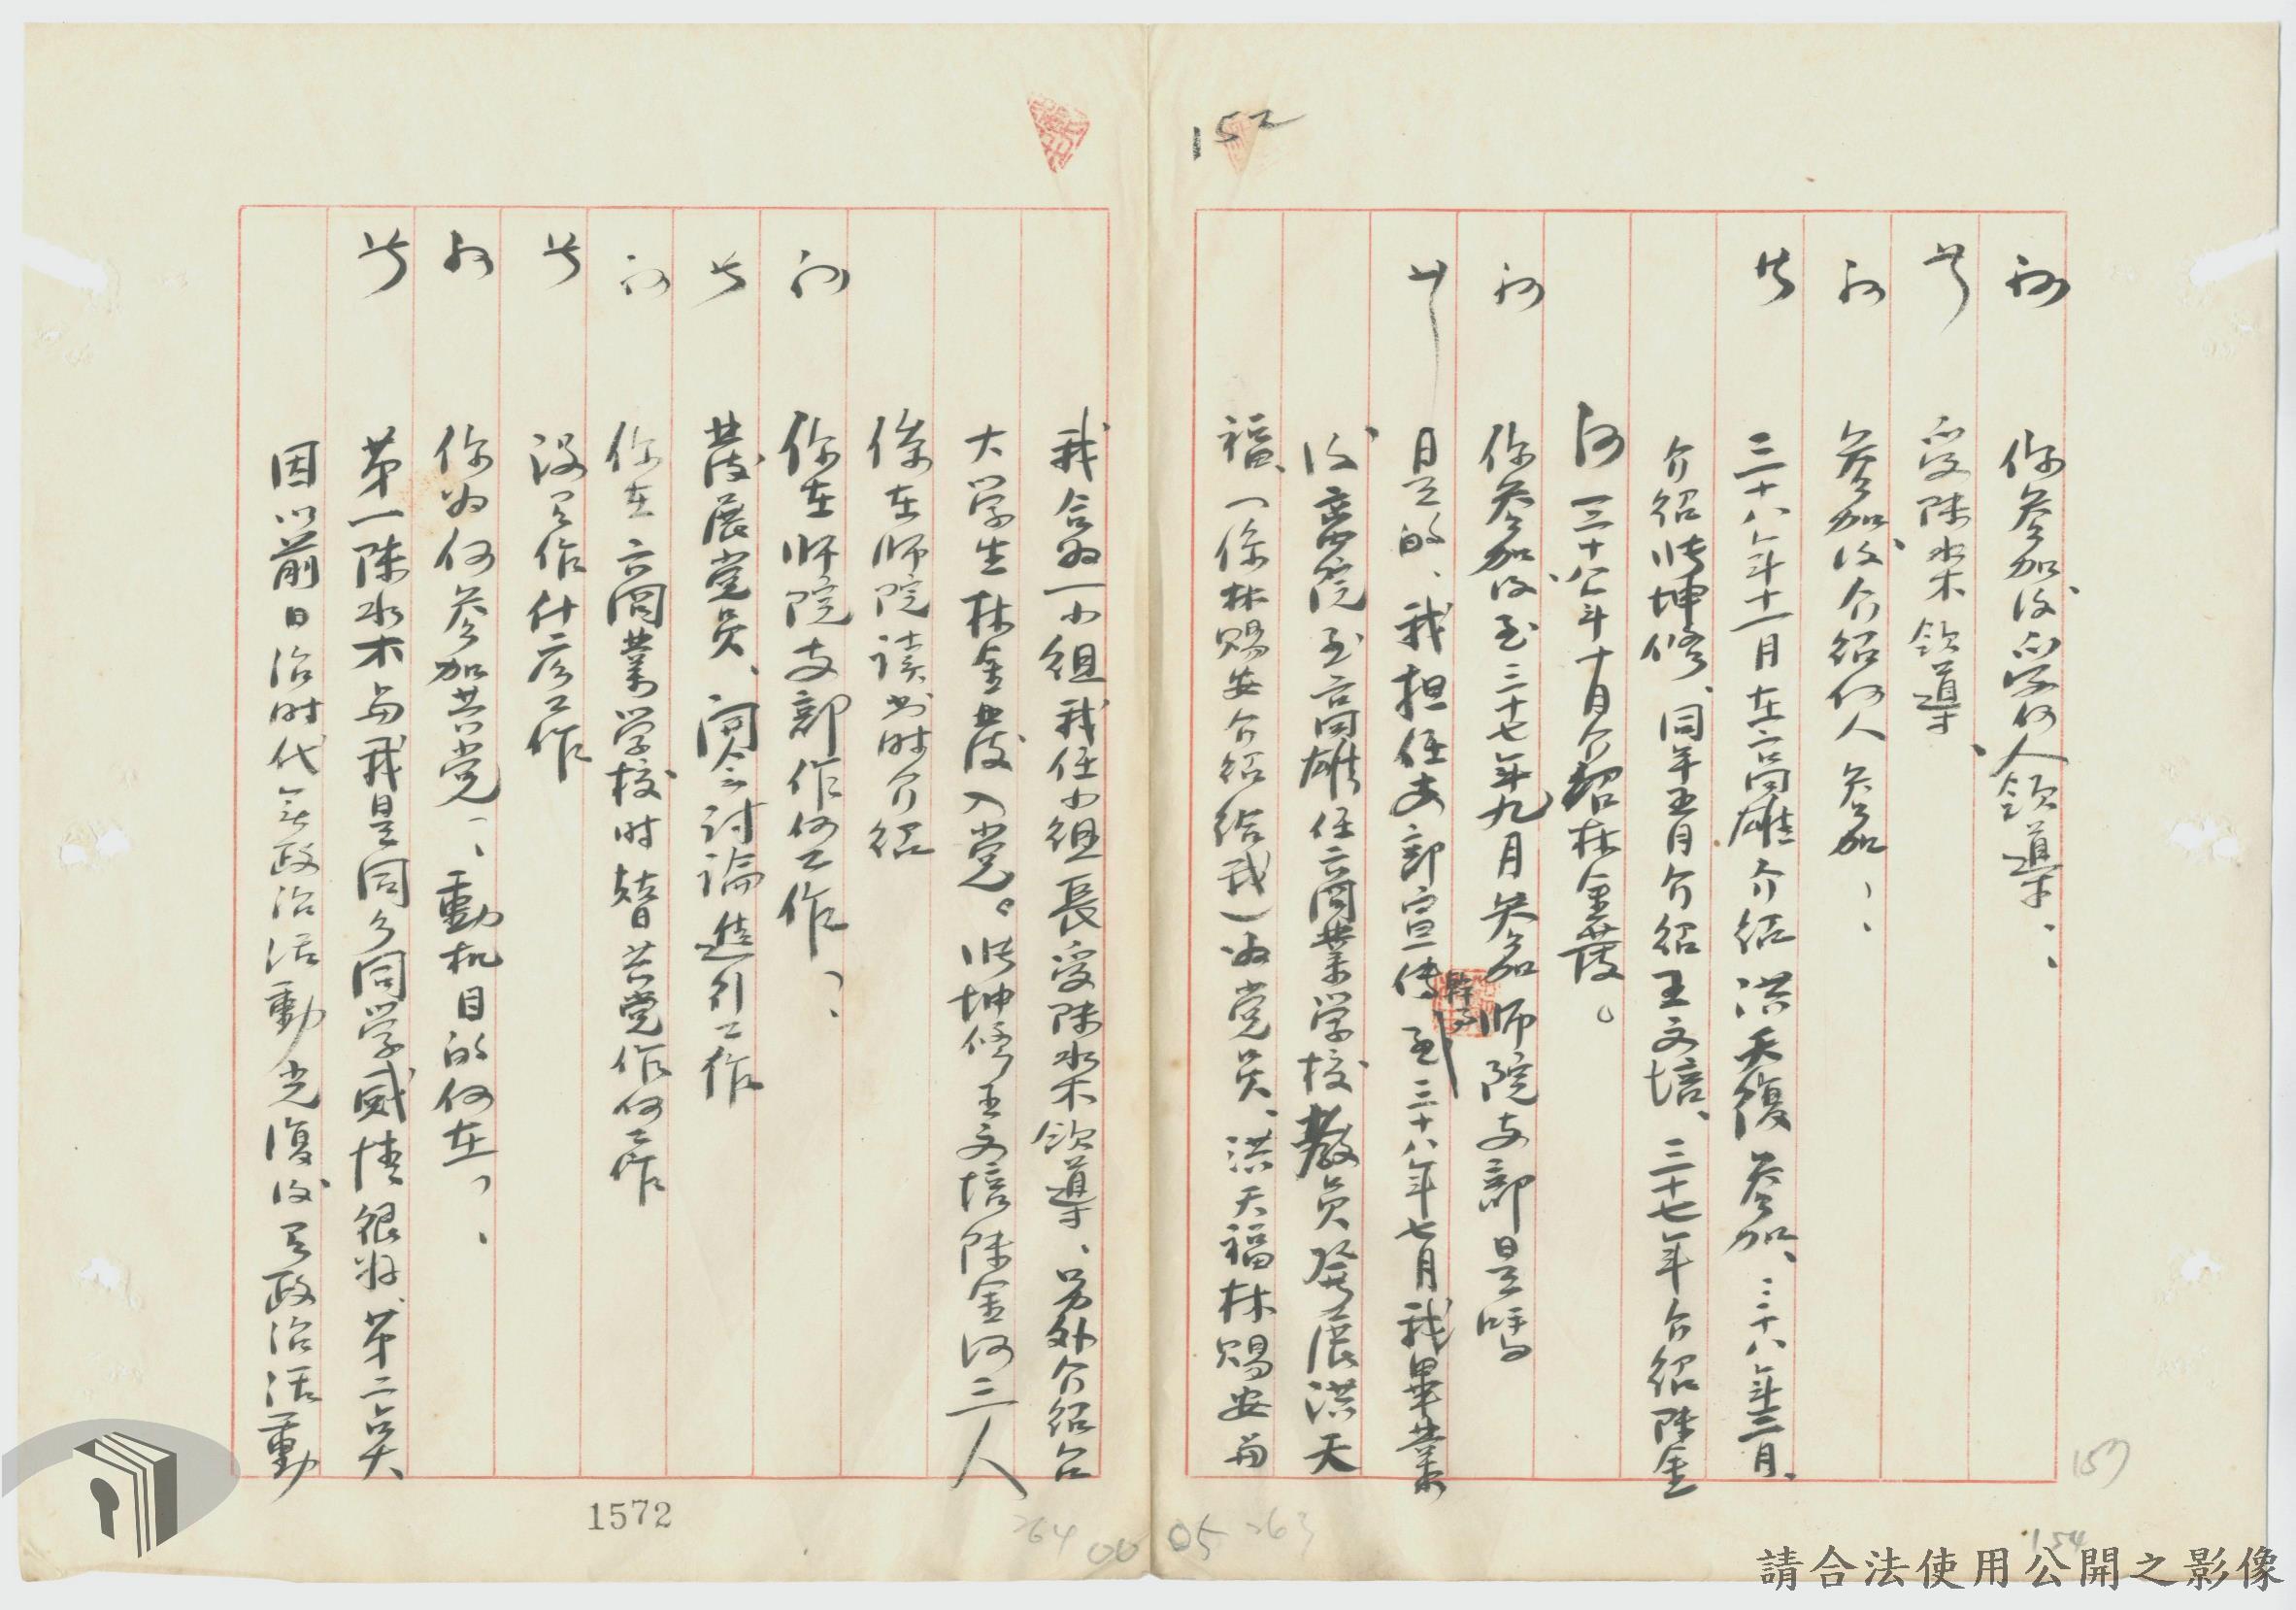 152
問 你參加後受何人領導？
答 受陳水木領導、
問 參加後介紹何人參加？
答 三十八年十一月在高雄介紹洪天復參加、三十八年三月、
介紹張坤修、同年五月介紹王文培、三十七年介紹陳金
河 三十八年十月介紹林金發。
問 你參加後至三十七年九月參加師院支部是嗎
答 是的、我担任支部宣傳 至三十八年七月我畢業
後離院至高雄任高商業学校教員發展洪天
福、(係林賜安介紹給我)為党員、洪天福林賜安與
我合為一小組我任小組長受陳水木領導、另外介紹台
大学生林金發入党。張坤修王文培陳金河三人
係在師院讀书时介紹
問 你在師院支部作何工作？
答 發展党員、開会討論進行工作
問 你在高商業学校时替共党作何工作
答 没有作什么工作
問 你为何參加共党？動机目的何在？
答 第一陳水木與我是同鄉同学感情很好、第二點
因以前日治时代無政治活動光復後有政治活動
1572
264
00
05
263
157
154
請合法使用公開之影像